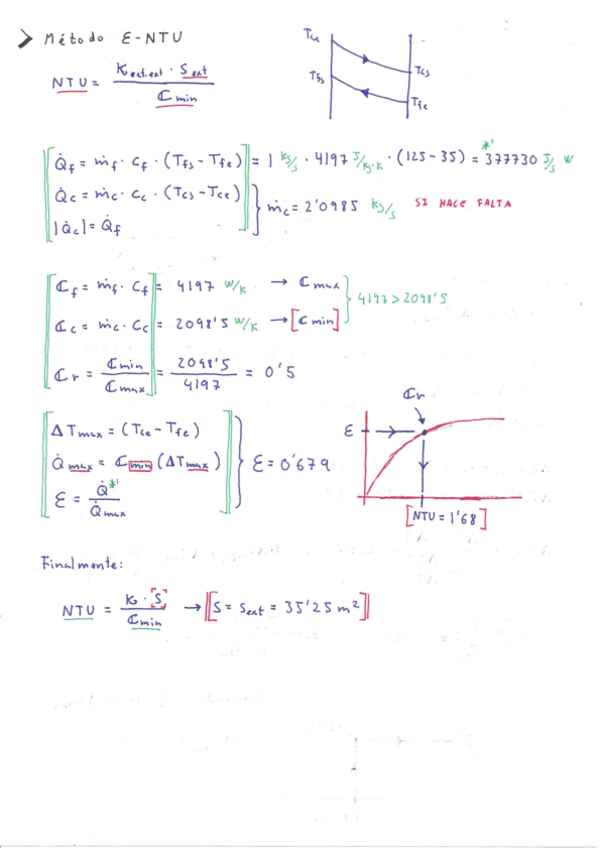 > Método Ɛ-NTU
NTU = K ext.ext · S ext / ℂ min
Tce
Tfs
Tcs
Tfe
Q̇f = ṁf · cf · (Tfs - Tfe) = 1 kg/s · 4197 J/kg·K · (125-35) = 377730 J/s W
*'
Q̇c = ṁc · cc · (Tcs - Tce)
|Q̇c| = Q̇f
ṁc = 2'0985 kg/s SI HACE FALTA
ℂf = ṁf · cf = 4197 W/K → ℂ max
ℂc = ṁc · cc = 2098'5 W/K → [ℂ min]
4197 > 2098'5
ℂr = ℂmin / ℂmax = 2098'5 / 4197 = 0'5
ΔTmax = (Tce - Tfe)
Q̇ max = ℂ min (ΔT max)
Ɛ = Q̇*' / Q̇ max
Ɛ = 0'679
ℂr
Ɛ
[NTU = 1'68]
Finalmente:
NTU = K · [S] / ℂ min → [S = Sext = 35'25 m²]